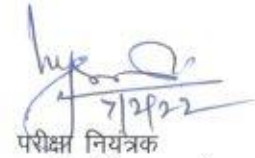 7/2/22
परीक्षा नियंत्रक